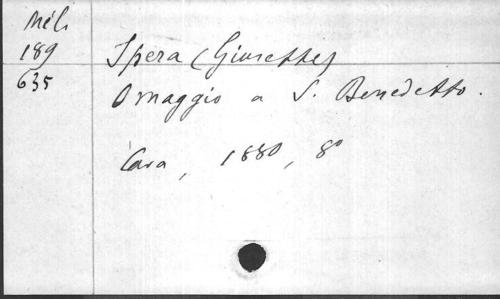 Mél.
189
635
Spera (Giuseppe)
Omaggio a S. Benedetto.
Cava, 1880, 8°